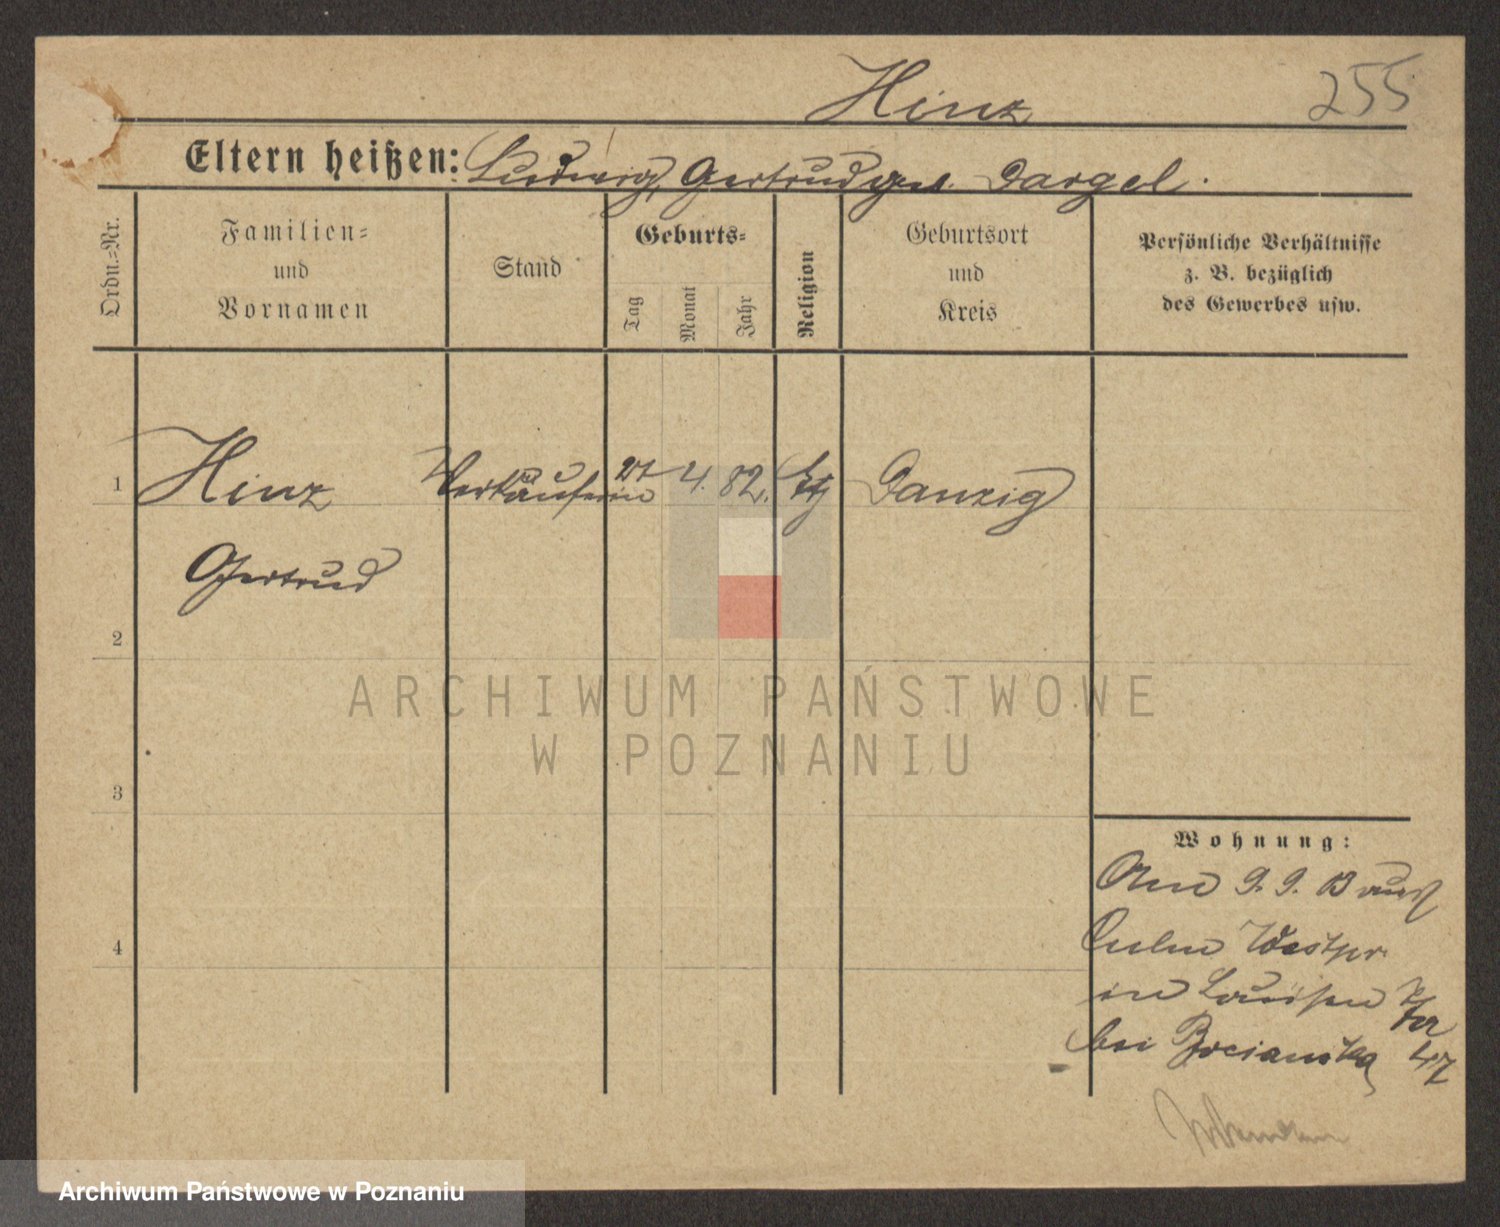 Hinz 255
Eltern heißen: Ludwig, Gertrud geb. Dargel.
Ordn.=Nr.
Familien=
und
Vornamen
Stand
Geburts=
Tag
Monat
Jahr
Religion
Geburtsort
und
Kreis
Persönliche Verhältnisse
z. B. bezüglich
des Gewerbes usw.
1 Hinz Verkäuferin 27 4. 82. Danzig
Gertrud
2
3
4
Wohnung:
Am 9. 9. 13 nach
Culm Westpr
in Louisen
bei Bocianska 47
ARCHIWUM PAŃSTWOWE
W POZNANIU
Archiwum Państwowe w Poznaniu